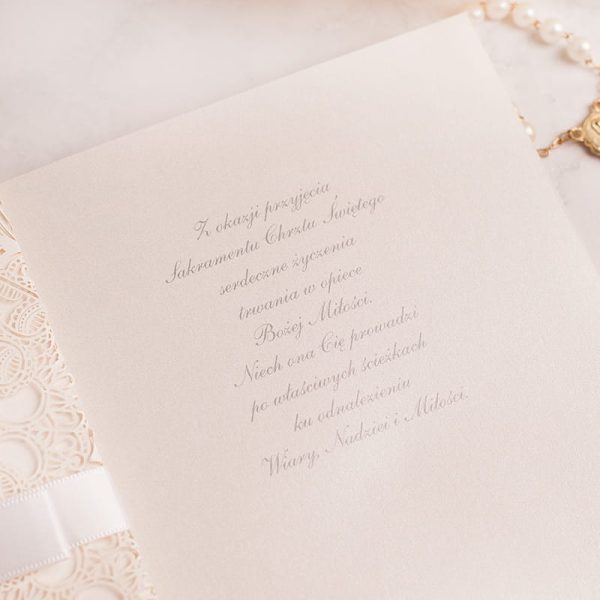 Z okazji przyjęcia
Sakramentu Chrztu Świętego
serdeczne życzenia
trwania w opiece
Bożej Miłości.
Niech ona Cię prowadzi
po właściwych ścieżkach
ku odnalezieniu
Wiary, Nadziei i Miłości.